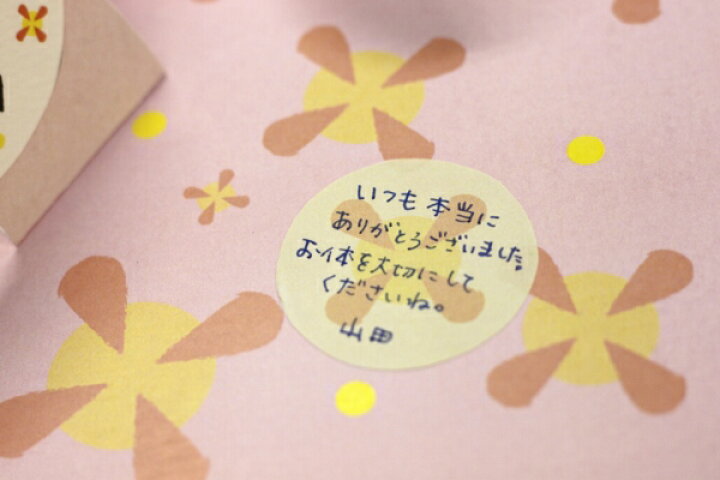 いつも本当に
ありがとうございました。
お体を大切にして
くださいね。
山田